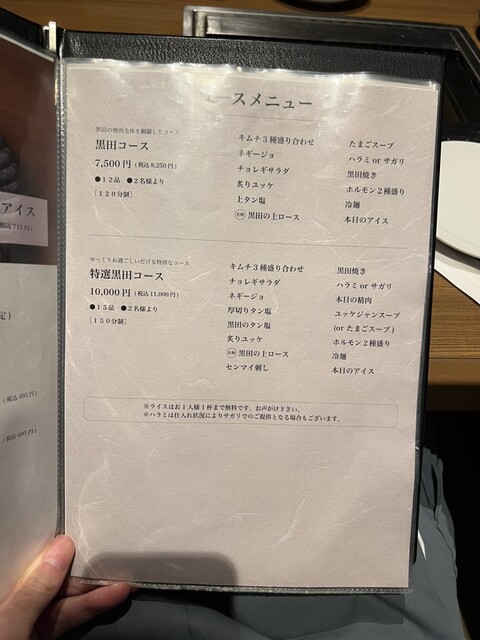 ースメニュー
黒田の焼肉全体を網羅したコース
黒田コース
7,500円 (税込8,250円)
●12品 ●2名様より
[120分制]
キムチ3種盛り合わせ
ネギージョ
チョレギサラダ
炙りユッケ
上タン塩
名物 黒田の上ロース
たまごスープ
ハラミ or サガリ
黒田焼き
ホルモン2種盛り
冷麺
本日のアイス
ゆっくりお過ごしいただける特別なコース
特選黒田コース
10,000円 (税込11,000円)
●15品 ●2名様より
[150分制]
キムチ3種盛り合わせ
チョレギサラダ
ネギージョ
厚切りタン塩
黒田のタン塩
炙りユッケ
名物 黒田の上ロース
センマイ刺し
黒田焼き
ハラミ or サガリ
本日の精肉
ユッケジャンスープ
(or たまごスープ)
ホルモン2種盛り
冷麺
本日のアイス
※ライスはお1人様1杯まで無料です。お声がけ下さい。
※ハラミは仕入れ状況によりサガリでのご提供となる場合もございます。
アイス
税込715円)
定)
(税込495円)
(税込495円)